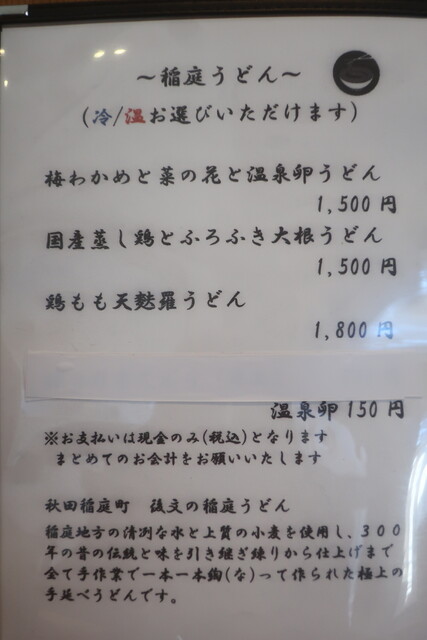 ～稲庭うどん～
(冷/温お選びいただけます)
梅わかめと菜の花と温泉卵うどん
1,500 円
国産蒸し鶏とふろふき大根うどん
1,500 円
鶏もも天麩羅うどん
1,800 円
温泉卵 150 円
※お支払いは現金のみ(税込)となります
まとめてのお会計をお願いいたします
秋田稲庭町　後文の稲庭うどん
稲庭地方の清冽な水と上質の小麦を使用し、３００
年の昔の伝統と味を引き継ぎ練りから仕上げまで
全て手作業で一本一本綯(な)って作られた極上の
手延べうどんです。